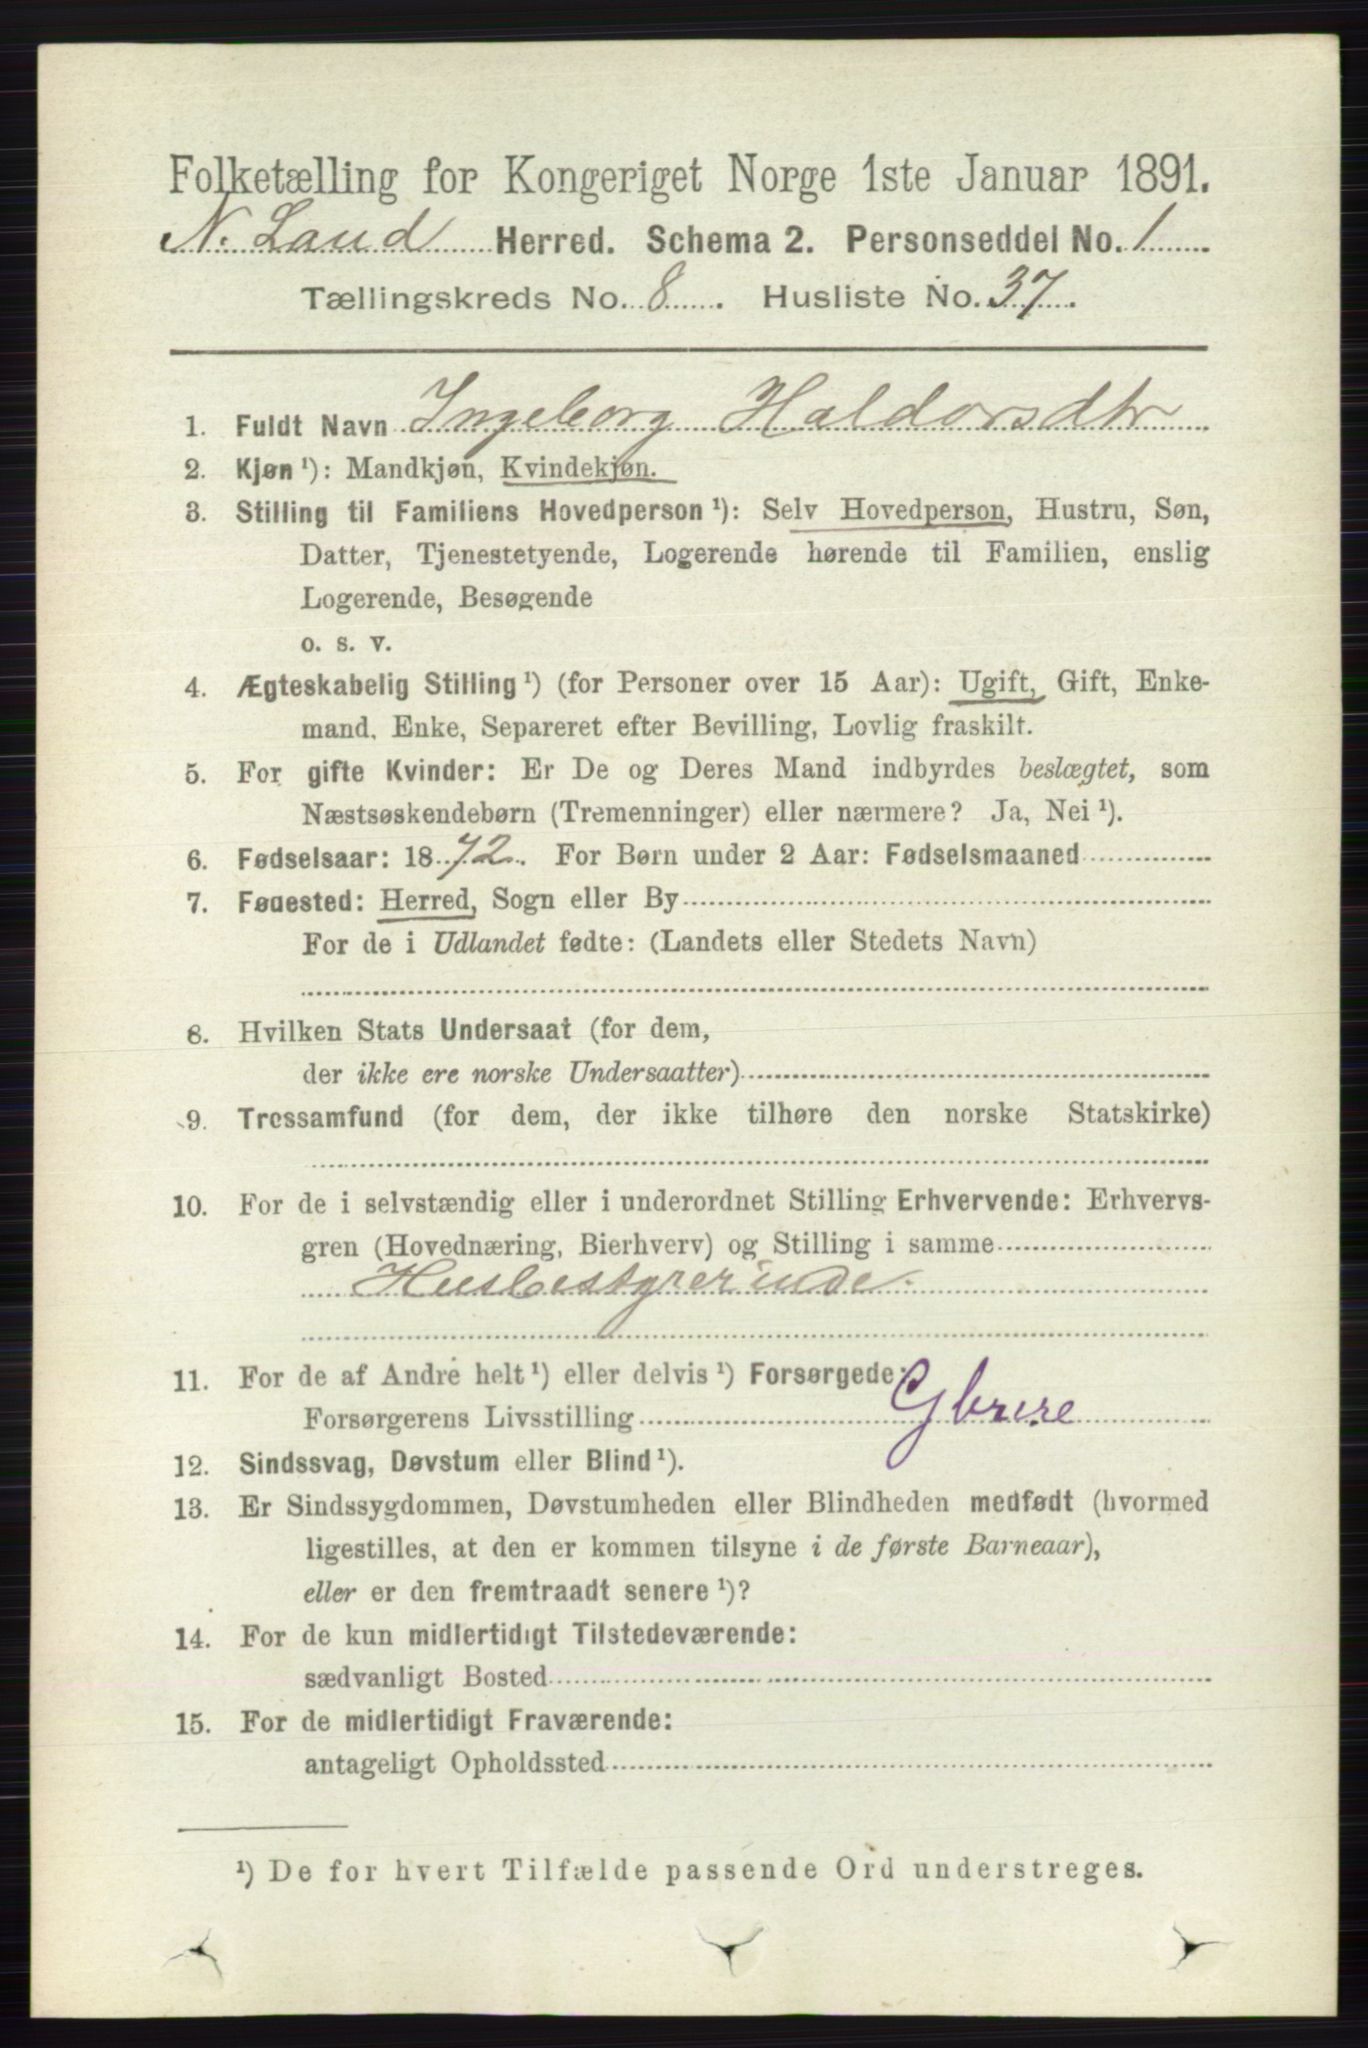 Folketælling for Kongeriget Norge 1ste Januar 1891.
N. Land Herred. Schema 2. Personseddel No. 1
Tællingskreds No. 8. Husliste No. 37.
1. Fuldt Navn Ingeborg Haldorsdtr
2. Kjøn ¹): Mandkjøn, Kvindekjøn.
3. Stilling til Familiens Hovedperson ¹): Selv Hovedperson, Hustru, Søn,
Datter, Tjenestetyende, Logerende hørende til Familien, enslig
Logerende, Besøgende
o. s. v.
4. Ægteskabelig Stilling ¹) (for Personer over 15 Aar): Ugift, Gift, Enke-
mand, Enke, Separeret efter Bevilling, Lovlig fraskilt.
5. For gifte Kvinder: Er De og Deres Mand indbyrdes beslægtet, som
Næstsøskendebørn (Tremenninger) eller nærmere? Ja, Nei ¹).
6. Fødselsaar: 1872. For Børn under 2 Aar: Fødselsmaaned
7. Fødested: Herred, Sogn eller By
For de i Udlandet fødte: (Landets eller Stedets Navn)
8. Hvilken Stats Undersaat (for dem,
der ikke ere norske Undersaatter)
9. Trossamfund (for dem, der ikke tilhøre den norske Statskirke)
10. For de i selvstændig eller i underordnet Stilling Erhvervende: Erhvervs-
gren (Hovednæring, Bierhverv) og Stilling i samme
Husbestyrerinde.
11. For de af Andre helt ¹) eller delvis ¹) Forsørgede:
Forsørgerens Livsstilling
12. Sindssvag, Døvstum eller Blind ¹).
13. Er Sindssygdommen, Døvstumheden eller Blindheden medfødt (hvormed
ligestilles, at den er kommen tilsyne i de første Barneaar),
eller er den fremtraadt senere ¹)?
14. For de kun midlertidigt Tilstedeværende:
sædvanligt Bosted
15. For de midlertidigt Fraværende:
antageligt Opholdssted
¹) De for hvert Tilfælde passende Ord understreges.